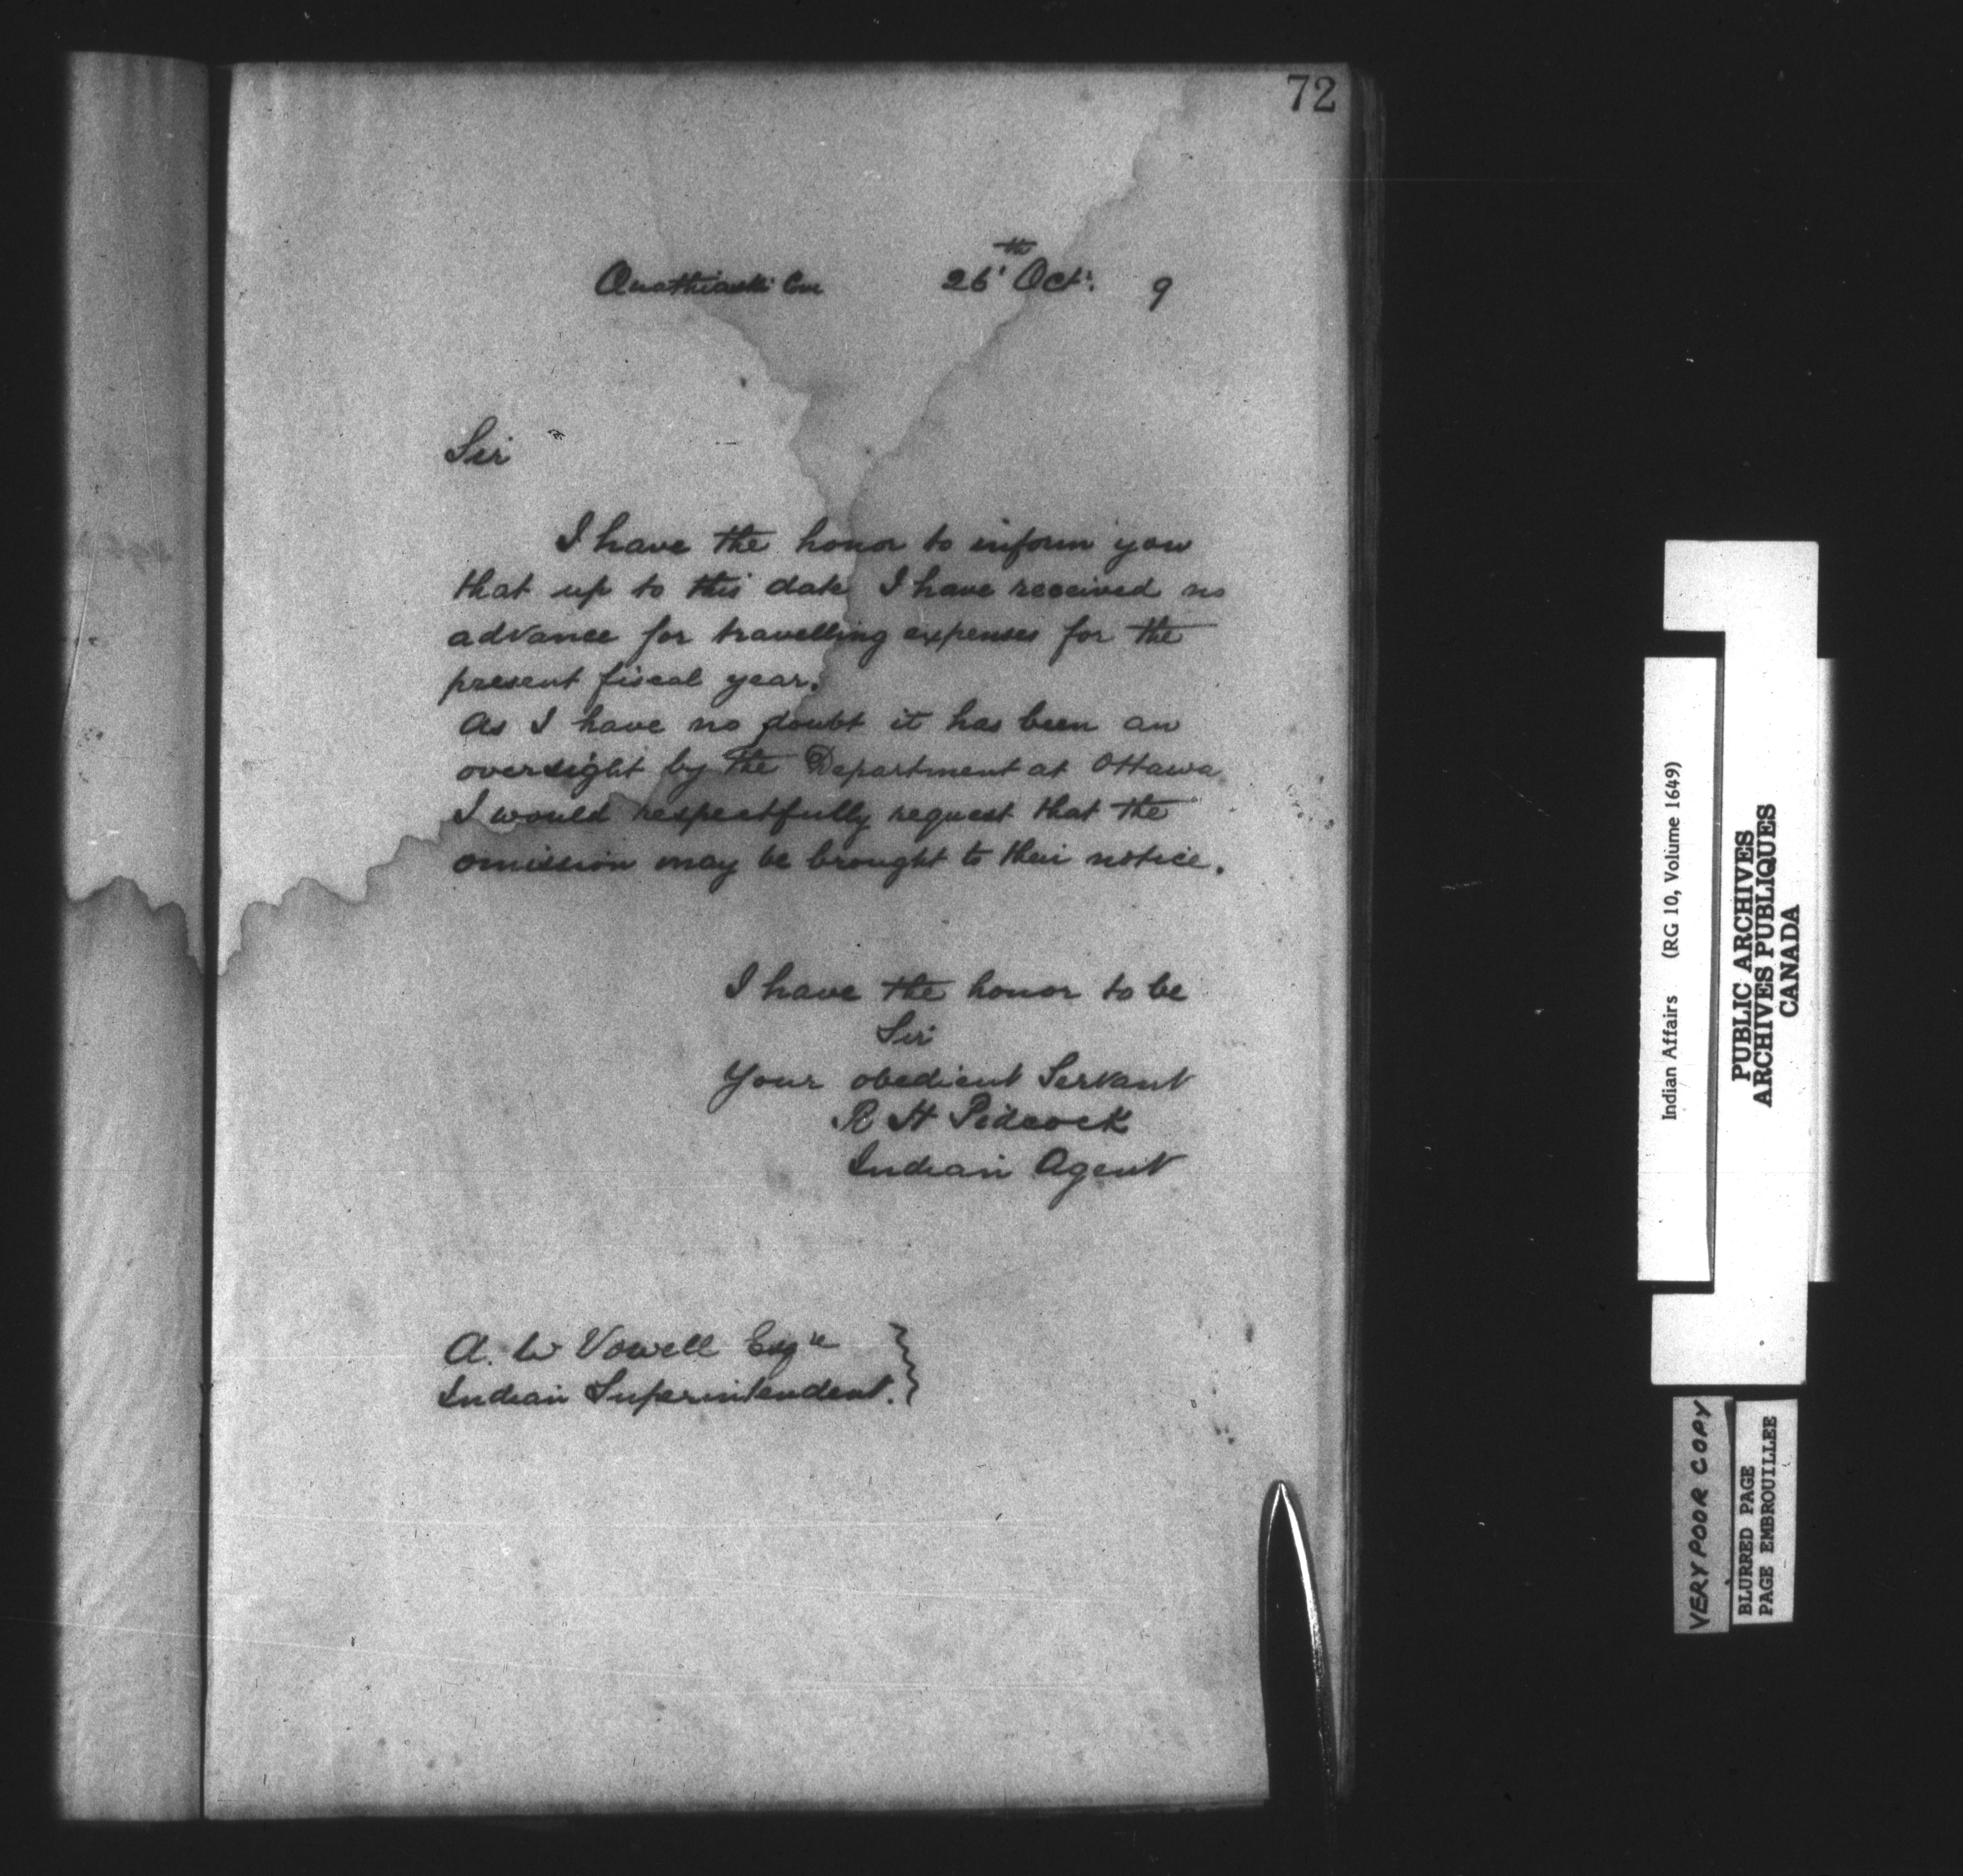 72
Quathiaski Cove 26th Oct. 9
Sir
I have the honor to inform you
that up to this date I have received no
advance for travelling expenses for the
present fiscal year.
As I have no doubt it has been an
oversight by the Department at Ottawa
I would respectfully request that the
omission may be brought to their notice.
I have the honor to be
Sir
Your obedient Servant
R H Pidcock
Indian Agent
A. W Vowell Esqre
Indian Superintendent.
Indian Affairs (RG 10, Volume 1649)
PUBLIC ARCHIVES
ARCHIVES PUBLIQUES
CANADA
VERY POOR COPY
BLURRED PAGE
PAGE EMBROUILLEE